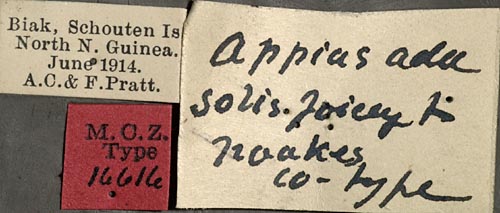 Biak, Schouten Is
North N. Guinea.
June 1914.
A.C. & F. Pratt.
M.C.Z.
Type
16616
Appias ada
solis. Joicey &
noakes
co-type